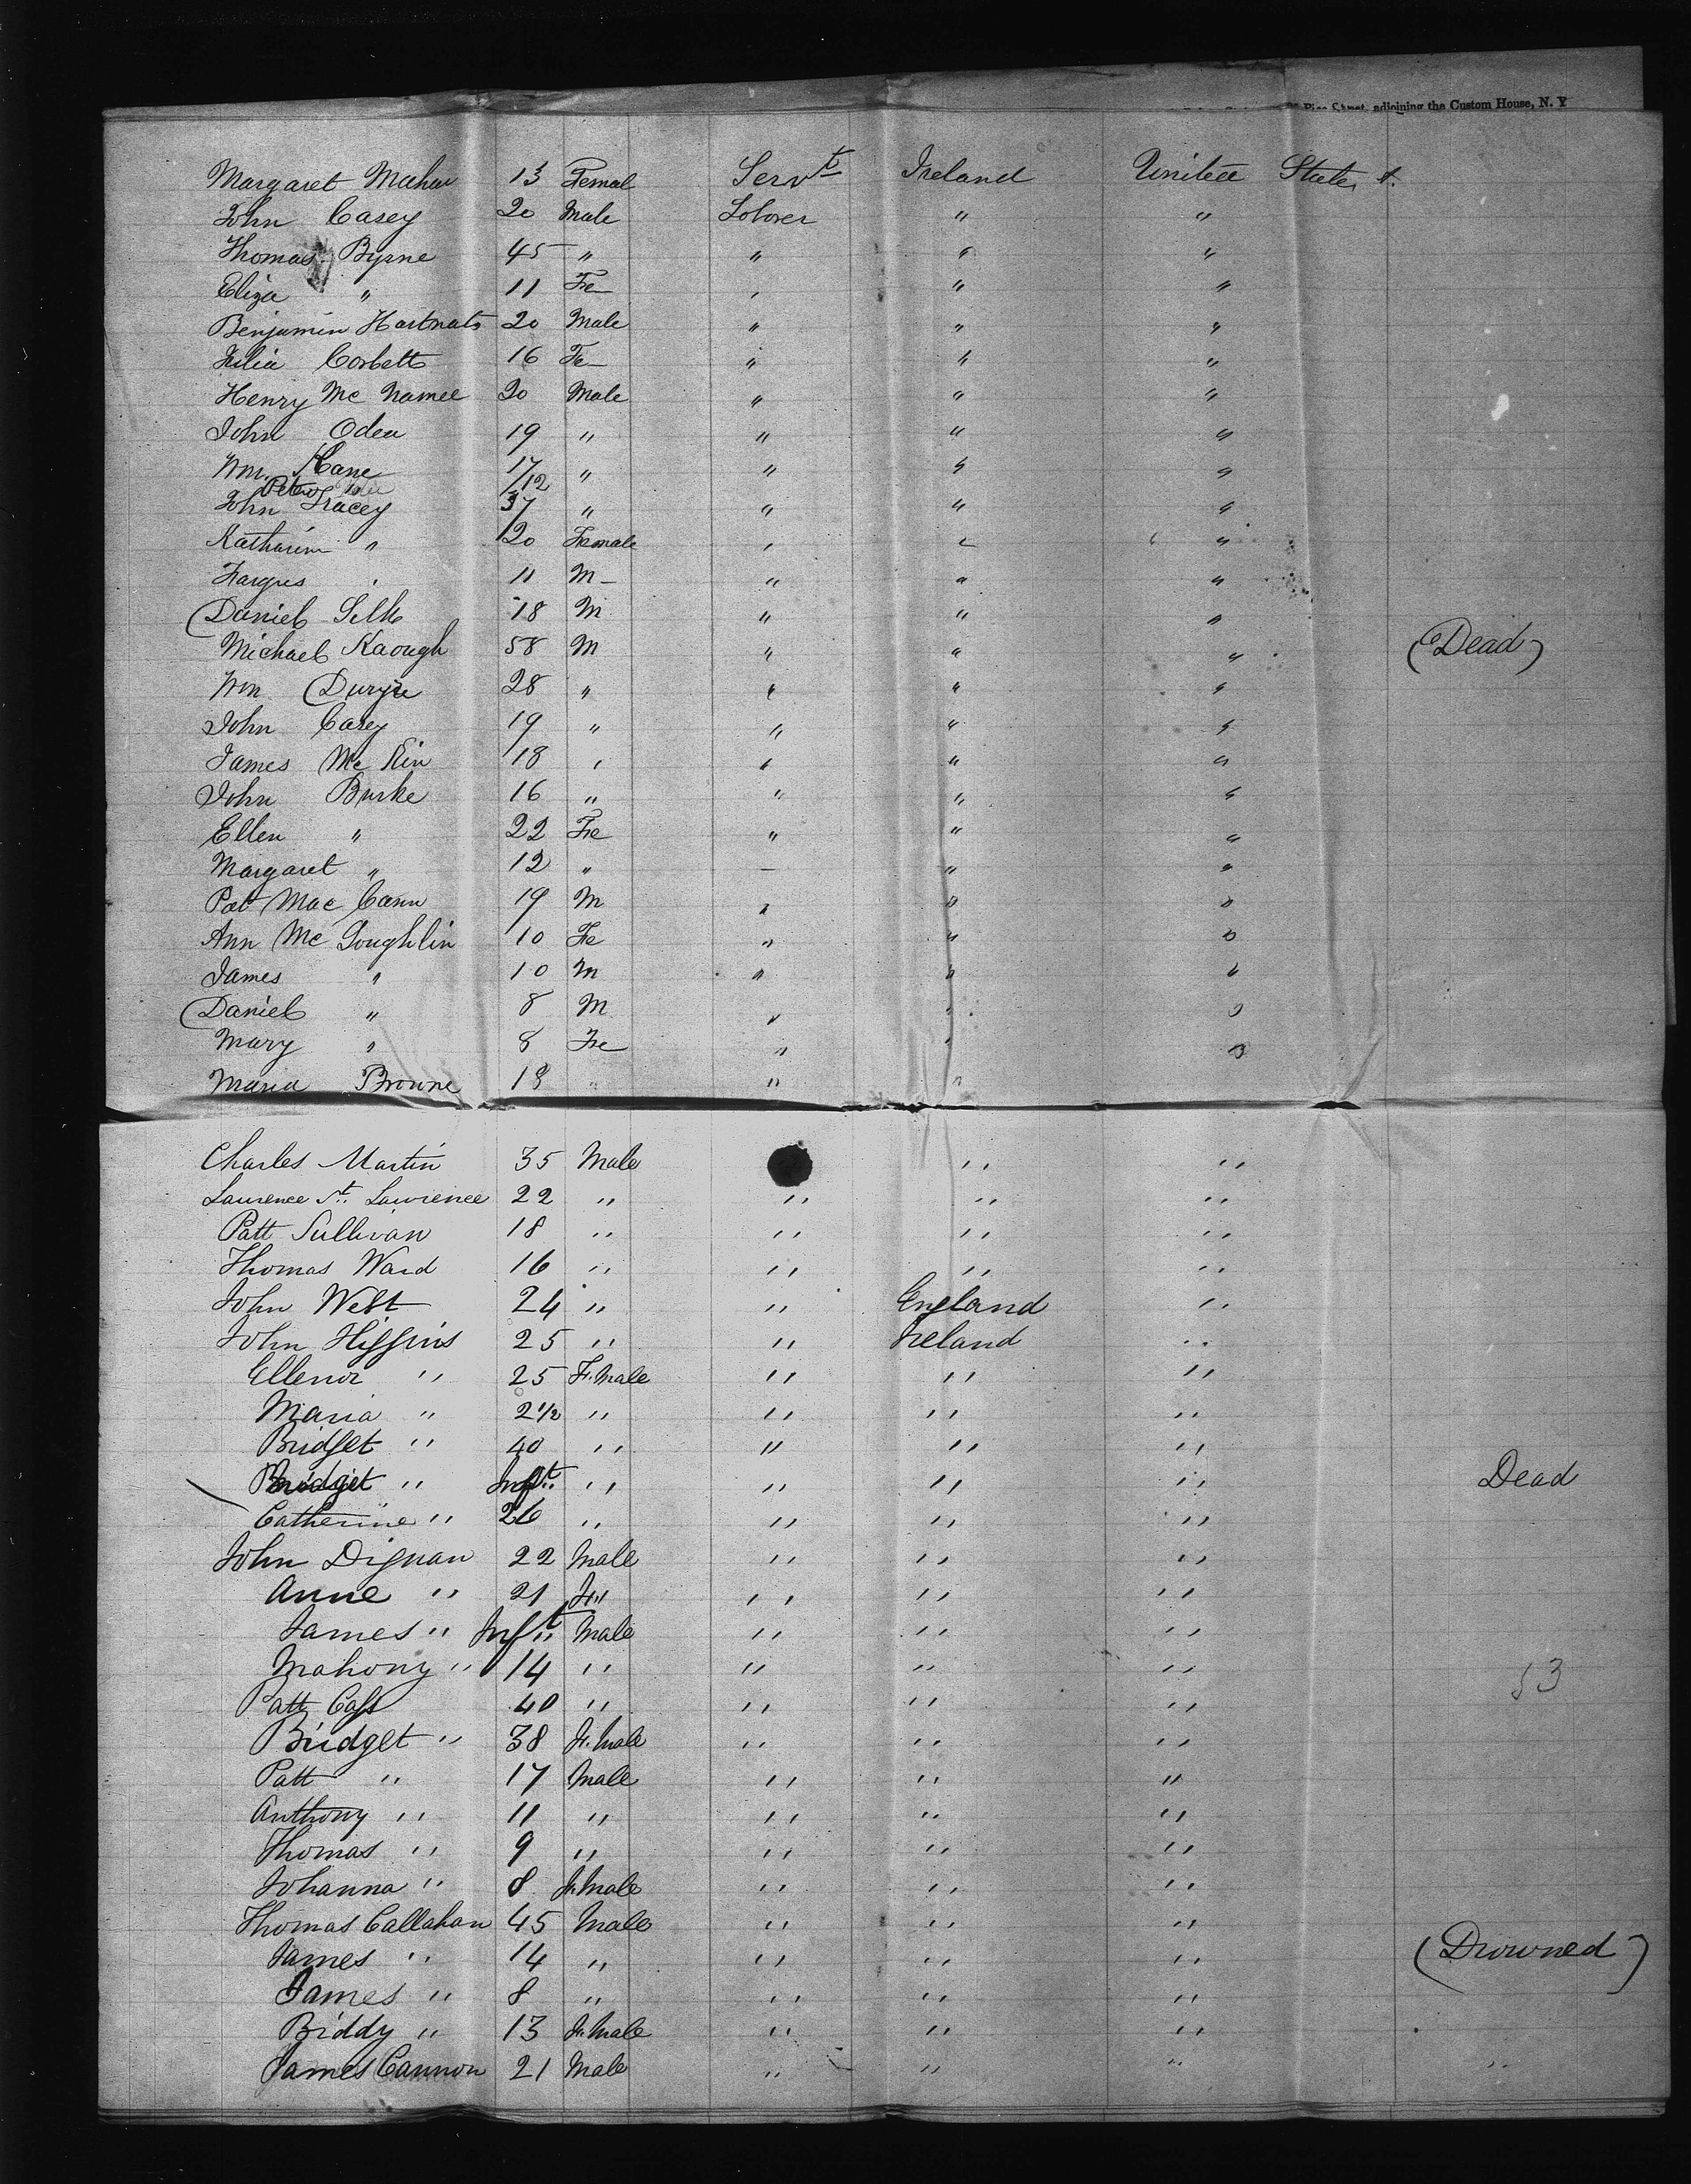 Pine Street, adjoining the Custom House, N. Y
Margaret Mahar 13 Femal Servt Ireland United States A.
John Casey 20 Male Laborer " "
Thomas Byrne 45 " " " "
Eliza " 11 Fe " " "
Benjamin Hartnats 20 Male " " "
Julia Corbett 16 Fe " " "
Henry Mc Namee 20 Male " " "
John Odea 19 " " " "
Wm. Kane 17 " " " "
Peter 12
John Tracey 37 " " " "
Katharine " 20 Female " " "
Fargus " 11 M " " "
Daniel Silk 18 M " " "
Michael Kaough 58 M " " " (Dead)
Wm Duryie 28 " " " "
John Casey 19 " " " "
James Mc Kin 18 " " " "
John Burke 16 " " " "
Ellen " 22 Fe " " "
Margaret " 12 " — " "
Pat Mac Cann 19 M " " "
Ann Mc Loughlin 10 Fe " " "
James " 10 M " " "
Daniel " 8 M " " "
Mary " 8 Fe " " "
Maria Browne 18 " " "
Charles Martin 35 Male " "
Laurence St. Lawrence 22 " " " "
Patt Sullivan 18 " " " "
Thomas Ward 16 " " " "
John West 24 " " England "
John Higgins 25 " " Ireland "
Ellenor " 25 Fe.Male " " "
Maria " 2½ " " " "
Bridget " 40 " " " "
Bridget " Inft " " " " Dead
Catherine " 26 " " " "
John Dignan 22 Male " " "
Anne " 21 Fe " " "
James " Inft Male " " "
Mahony " 14 " " " "
53
Patt Cass 40 " " " "
Bridget " 38 Fe.Male " " "
Patt " 17 Male " " "
Anthony " 11 " " " "
Thomas " 9 " " " "
Johanna " 8 Fe.Male " " "
Thomas Callahan 45 Male " " "
James " 14 " " " " (Drowned)
James " 8 " " " "
Biddy " 13 Fe.Male " " "
James Cannon 21 Male " " " "